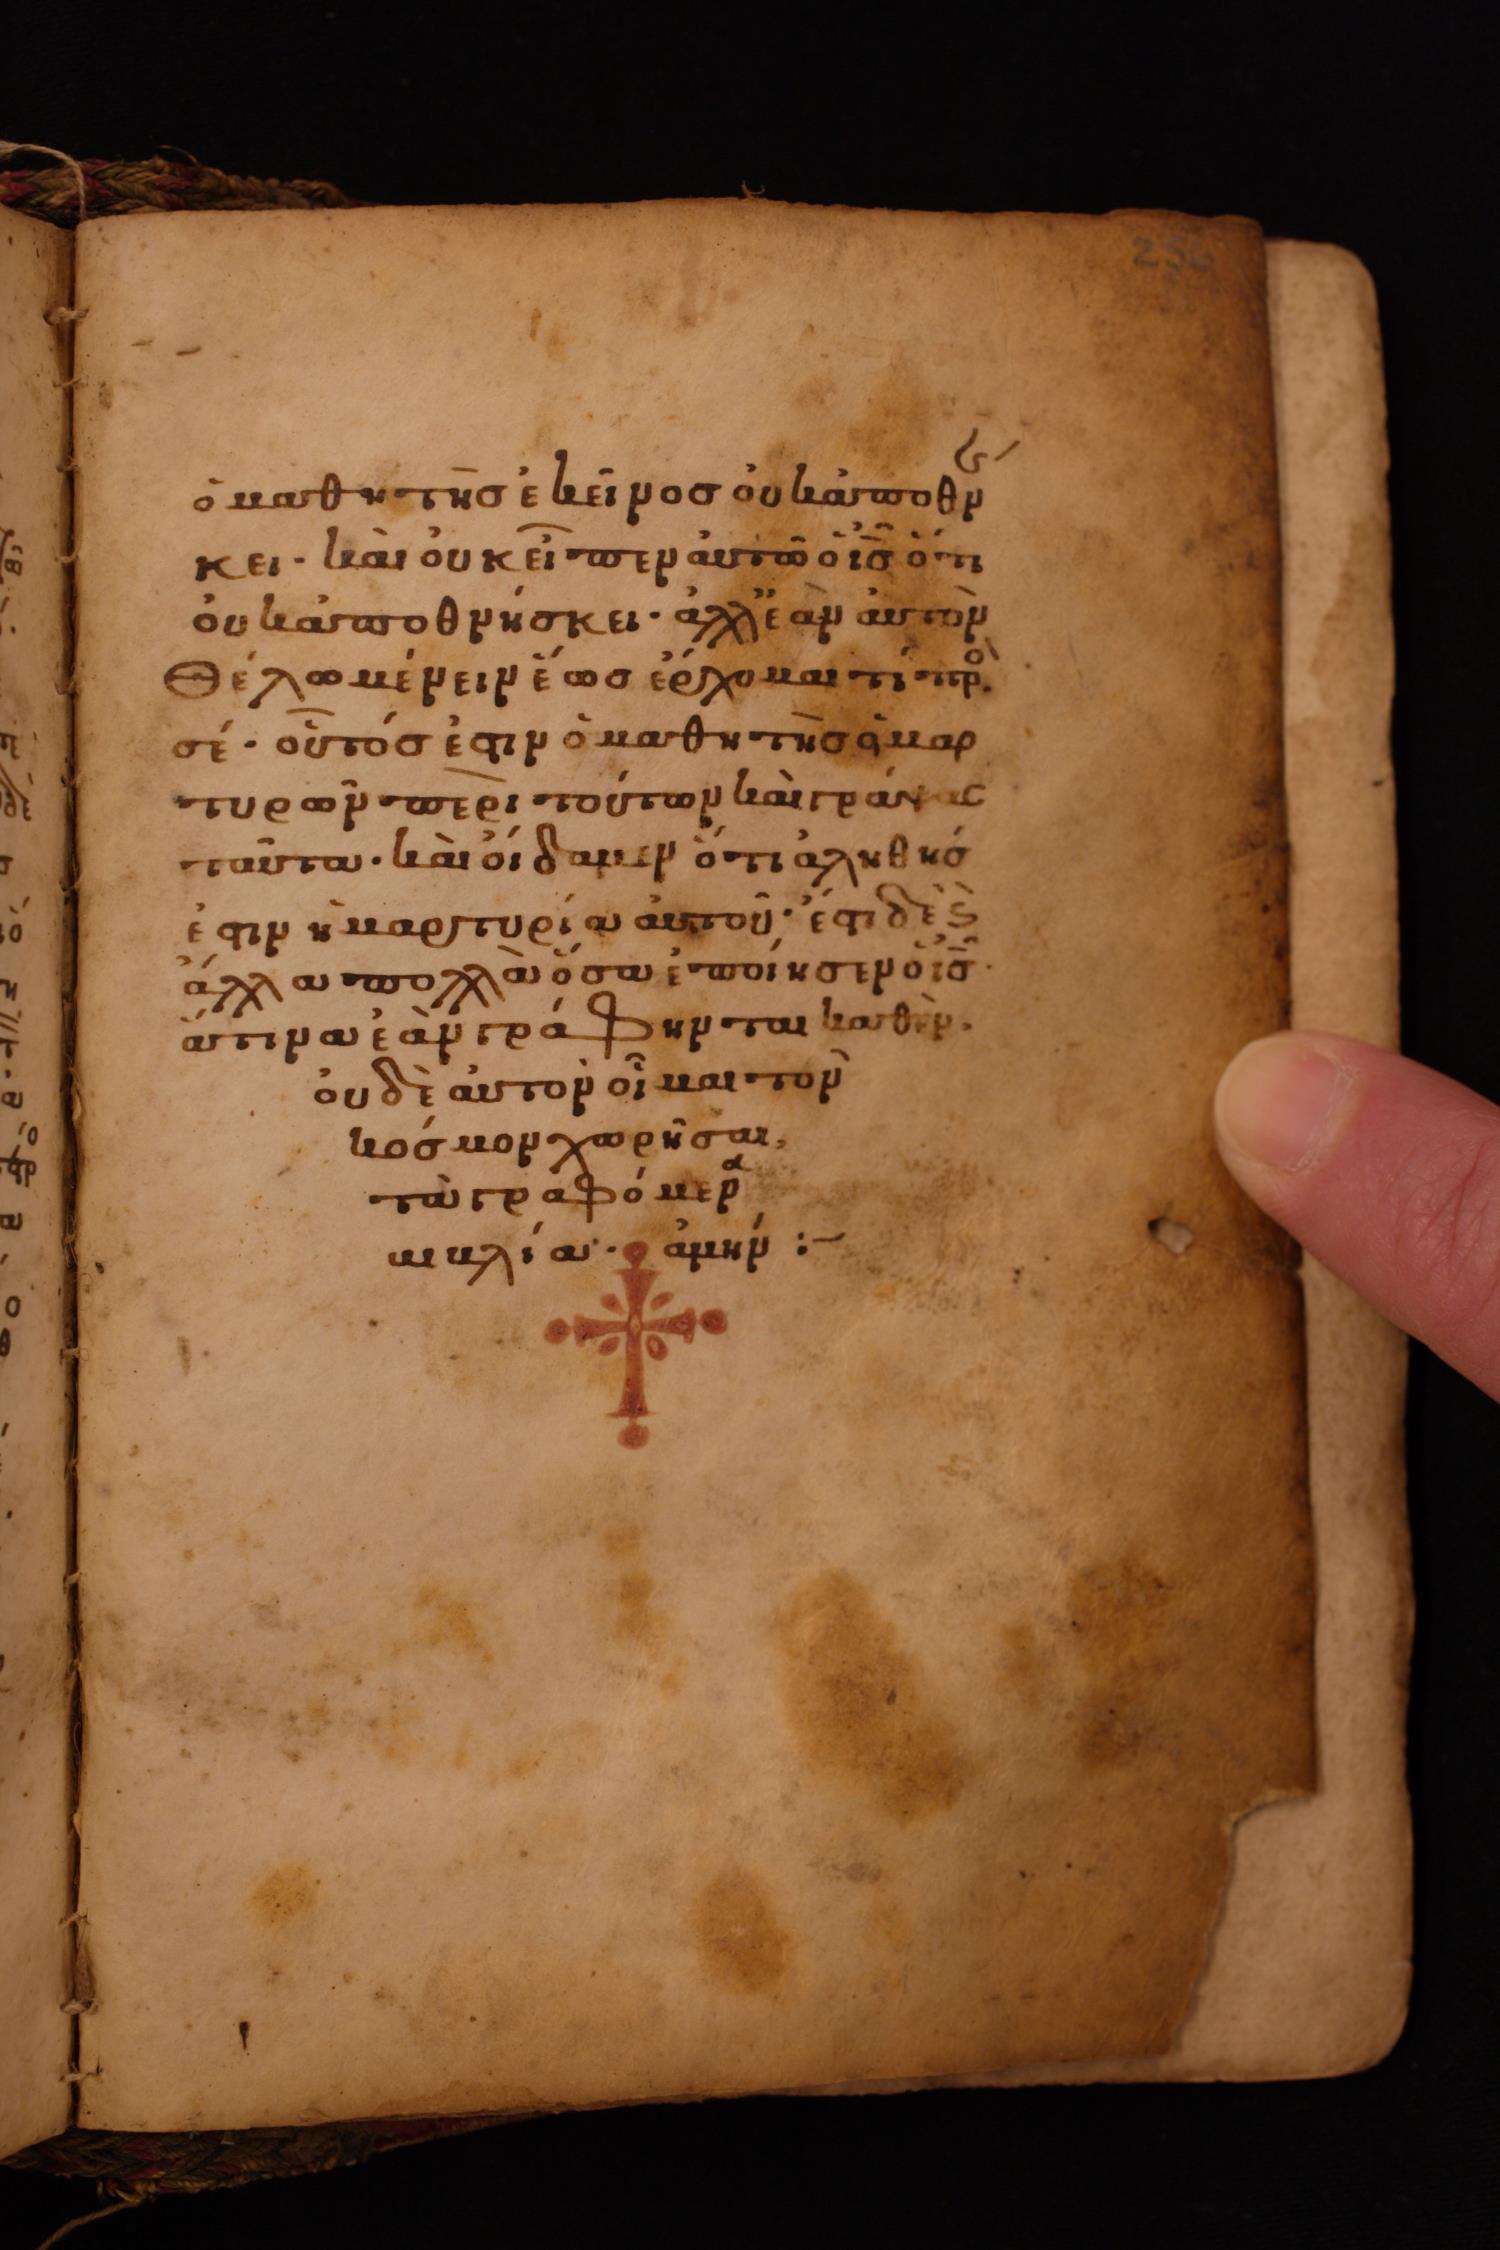 256
ὁ μαθητὴς ἐκεῖνος οὐκ ἀποθνή
κει· καὶ οὐκ εἶπεν αὐτῶ ὁ ἰ̅ς̅ ὅτι
οὐκ ἀποθνήσκει· ἀλλ' ἐὰν αὐτὸν
θέλω μένειν ἕως ἔρχομαι τί πρὸ
σέ· οὗτός ἐστιν ὁ μαθητὴς ὁ μαρ
τυρῶν περὶ τούτων καὶ γράψας
ταῦτα· καὶ οἴδαμεν ὅτι ἀληθής
ἐστιν ἡ μαρτυρία αὐτοῦ· ἔστι δὲ κ(αὶ)
ἄλλα πολλὰ ὅσα ἐποίησεν ὁ ἰ̅ς̅·
ἅτινα ἐὰν γράφηνται καθ' ἓν,
οὐδὲ αὐτὸν οἶμαι τὸν
κόσμον χωρῆσαι,
τὰ γραφόμενα
βιβλία· ἀμήν :~